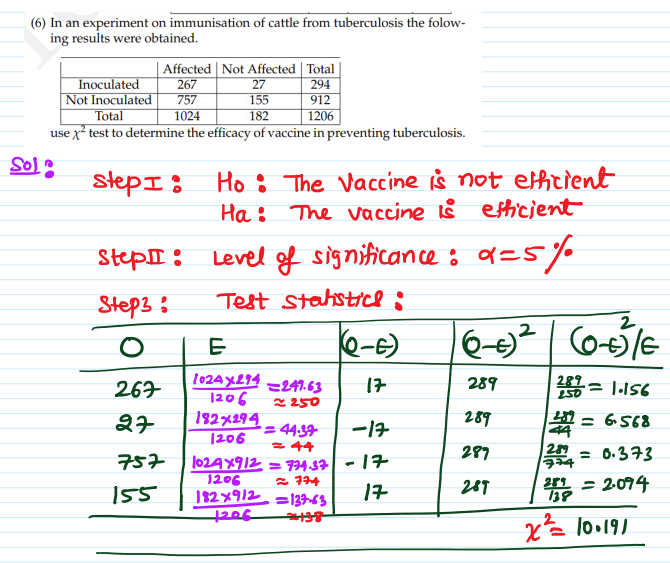 (6) In an experiment on immunisation of cattle from tuberculosis the folow-
ing results were obtained.
Affected Not Affected Total
Inoculated 267 27 294
Not Inoculated 757 155 912
Total 1024 182 1206
use χ² test to determine the efficacy of vaccine in preventing tuberculosis.
Sol :
Step I : Ho : The Vaccine is not efficient
Ha : The vaccine is efficient
Step II : Level of significance : α = 5 %
Step 3 : Test Statistics :
O E (O-E) (O-E)² (O-E)²/E
267 1024×294/1206 = 249.63 ≈ 250 17 289 289/250 = 1.156
27 182×294/1206 = 44.37 ≈ 44 -17 289 289/44 = 6.568
757 1024×912/1206 = 774.37 ≈ 774 -17 289 289/774 = 0.373
155 182×912/1206 = 137.63 ≈ 138 17 289 289/138 = 2.094
χ² = 10.191